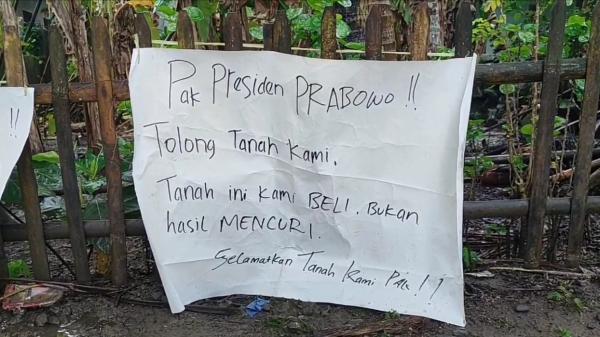 Pak Presiden PRABOWO !!
Tolong Tanah Kami.
Tanah ini Kami BELI. Bukan
hasil MENCURI.
Selamatkan Tanah Kami Pak !!
!!